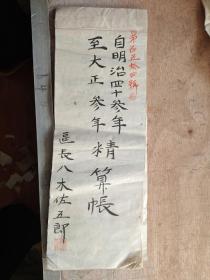 第百五拾四號
自明治四十参年
至大正参年精算帳
區長八木佐五郎